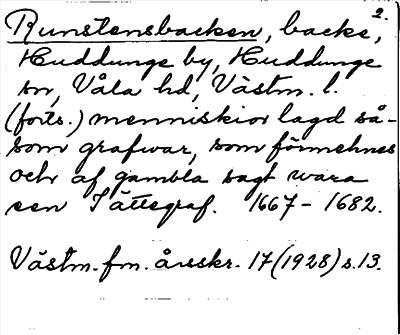 2.
Runstensbacken, backe,
Huddunge by, Huddunge
sn, Våla hd, Västm. l.
(forts.) menniskior lagd så-
som grafwar, som förmehnes
och af gambla sagt wara
een Jättegraf. 1667 - 1682.
Västm. fm. årsskr. 17 (1928) s. 13.